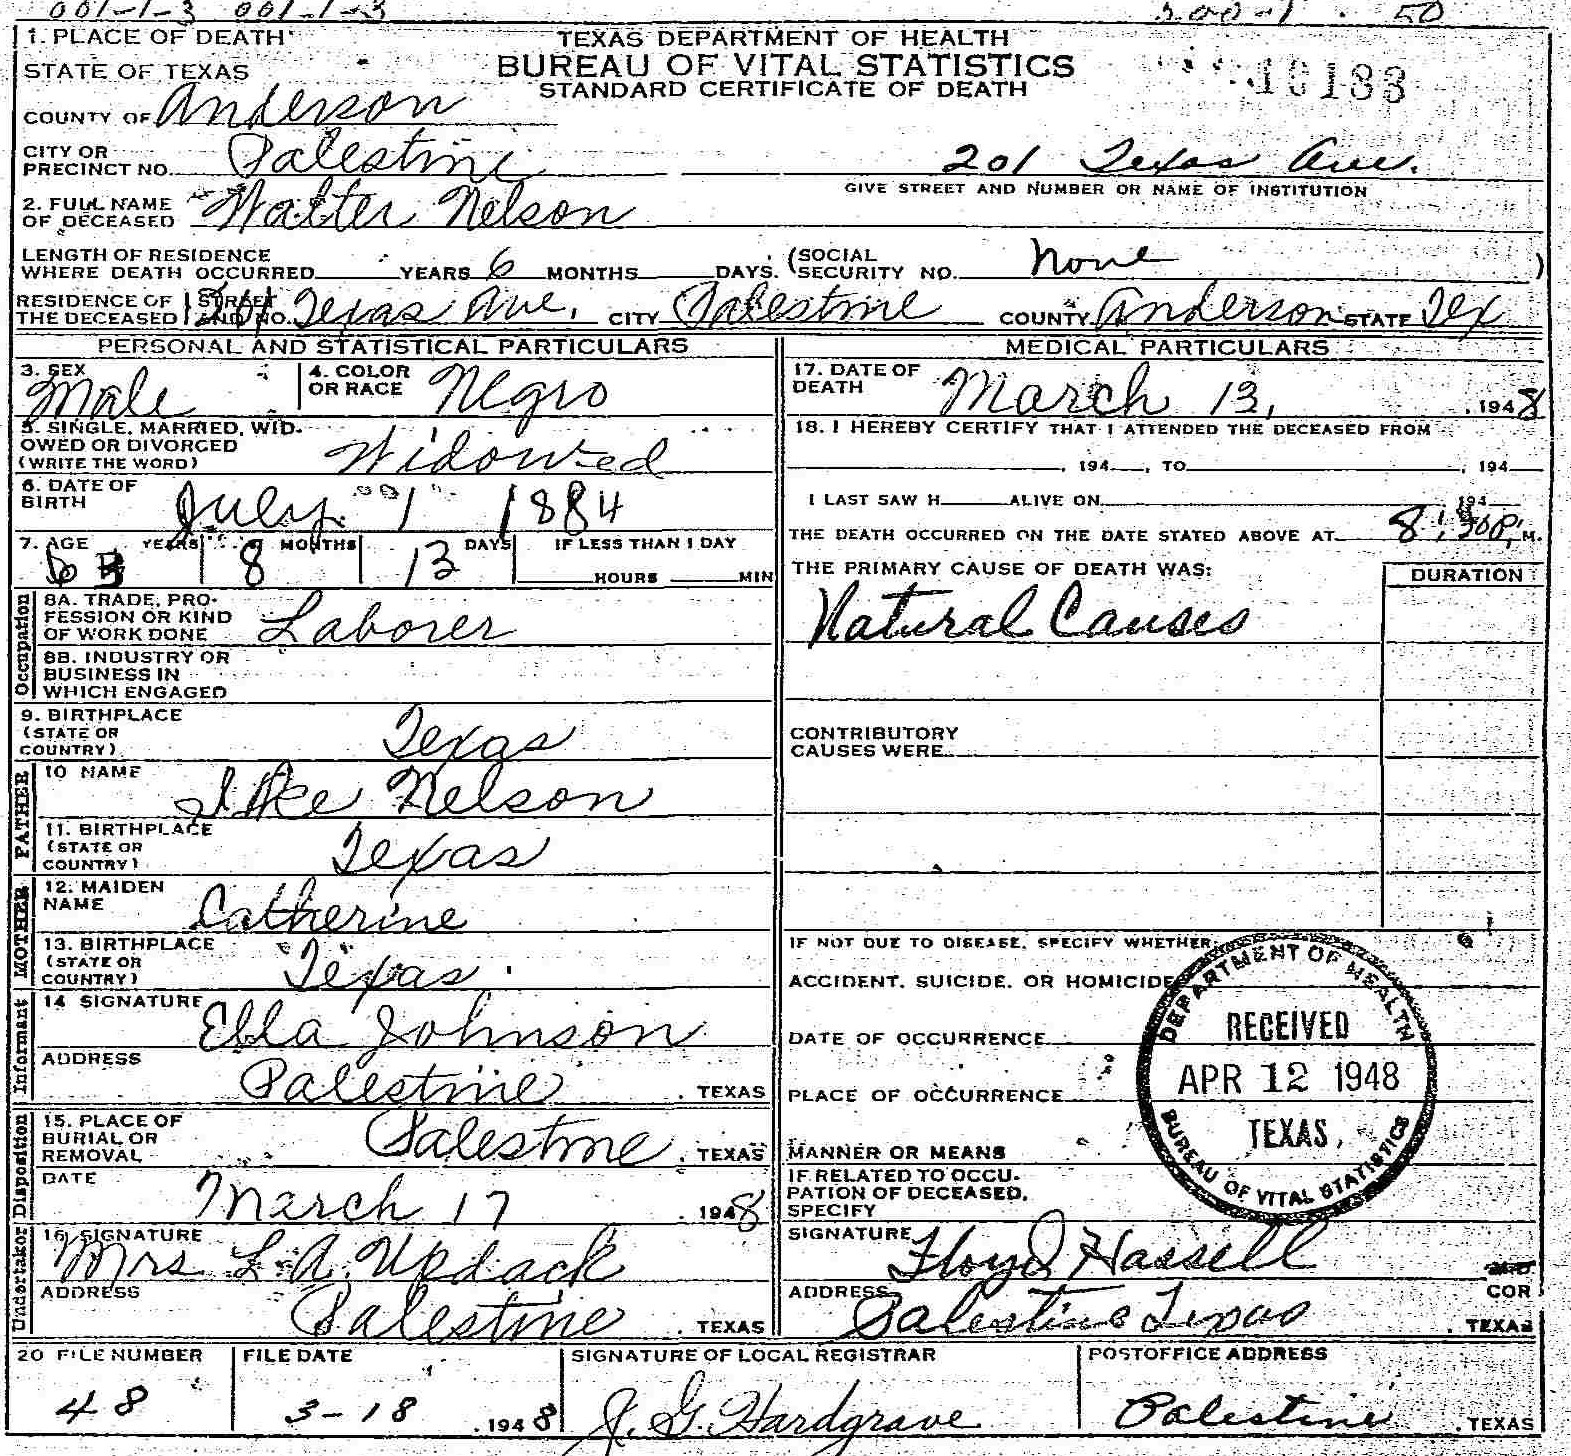 001-1-3 001-1-3
1. PLACE OF DEATH
STATE OF TEXAS
COUNTY OF Anderson
CITY OR PRECINCT NO. Palestine
TEXAS DEPARTMENT OF HEALTH
BUREAU OF VITAL STATISTICS
STANDARD CERTIFICATE OF DEATH
201 Texas Ave.
GIVE STREET AND NUMBER OR NAME OF INSTITUTION
2. FULL NAME OF DECEASED Walter Nelson
LENGTH OF RESIDENCE
WHERE DEATH OCCURRED YEARS 6 MONTHS DAYS. (SOCIAL SECURITY NO. None )
RESIDENCE OF THE DECEASED STREET AND NO. 201 Texas Ave. CITY Palestine COUNTY Anderson STATE Tex
PERSONAL AND STATISTICAL PARTICULARS
3. SEX Male
4. COLOR OR RACE Negro
5. SINGLE, MARRIED, WIDOWED OR DIVORCED
(WRITE THE WORD) Widowed
6. DATE OF BIRTH July 1 1884
7. AGE YEARS 63 8 MONTHS 13 DAYS IF LESS THAN 1 DAY
HOURS MIN
Occupation
8A. TRADE, PROFESSION OR KIND OF WORK DONE Laborer
8B. INDUSTRY OR BUSINESS IN WHICH ENGAGED
9. BIRTHPLACE (STATE OR COUNTRY) Texas
FATHER
10 NAME Ike Nelson
11. BIRTHPLACE (STATE OR COUNTRY) Texas
MOTHER
12. MAIDEN NAME Catherine
13. BIRTHPLACE (STATE OR COUNTRY) Texas
Informant
14 SIGNATURE Ella Johnson
ADDRESS Palestine, TEXAS
Disposition
15. PLACE OF BURIAL OR REMOVAL Palestine, TEXAS
DATE March 17, 1948
Undertaker
16. SIGNATURE Mrs L. A. Updack
ADDRESS Palestine, TEXAS
MEDICAL PARTICULARS
17. DATE OF DEATH March 13, 1948
18. I HEREBY CERTIFY THAT I ATTENDED THE DECEASED FROM
, 194 , TO , 194
I LAST SAW H ALIVE ON 194
THE DEATH OCCURRED ON THE DATE STATED ABOVE AT P. M.
THE PRIMARY CAUSE OF DEATH WAS: DURATION
Natural Causes
CONTRIBUTORY CAUSES WERE
IF NOT DUE TO DISEASE, SPECIFY WHETHER:
ACCIDENT, SUICIDE, OR HOMICIDE
DATE OF OCCURRENCE
PLACE OF OCCURRENCE
MANNER OR MEANS
IF RELATED TO OCCUPATION OF DECEASED, SPECIFY
DEPARTMENT OF HEALTH
RECEIVED
APR 12 1948
TEXAS,
BUREAU OF VITAL STATISTICS
SIGNATURE Floyd Hassell COR
ADDRESS Palestine Texas, TEXAS
20 FILE NUMBER 48
FILE DATE 3-18, 1948
SIGNATURE OF LOCAL REGISTRAR J. G. Hardgrave
POSTOFFICE ADDRESS Palestine, TEXAS